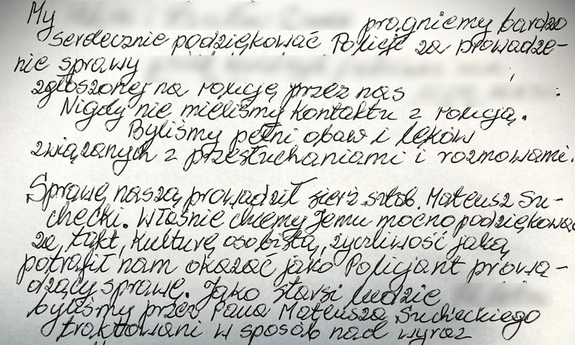 My pragniemy bardzo
serdecznie podziękować Policji za prowadze-
nie sprawy
zgłoszonej na policję przez nas
Nigdy nie mieliśmy kontaktu z policją.
Byliśmy pełni obaw i lęków
związanych z przesłuchaniami i rozmowami.
Sprawę naszą prowadził sierż sztab. Mateusz Su-
checki. Właśnie chcemy Jemu mocno podziękować
za takt, kulturę osobistą, życzliwość jaką
potrafił nam okazać jako Policjant prowa-
dzący sprawę. Jako starsi ludzie
byliśmy przez Pana Mateusza Sucheckiego
traktowani w sposób nad wyraz